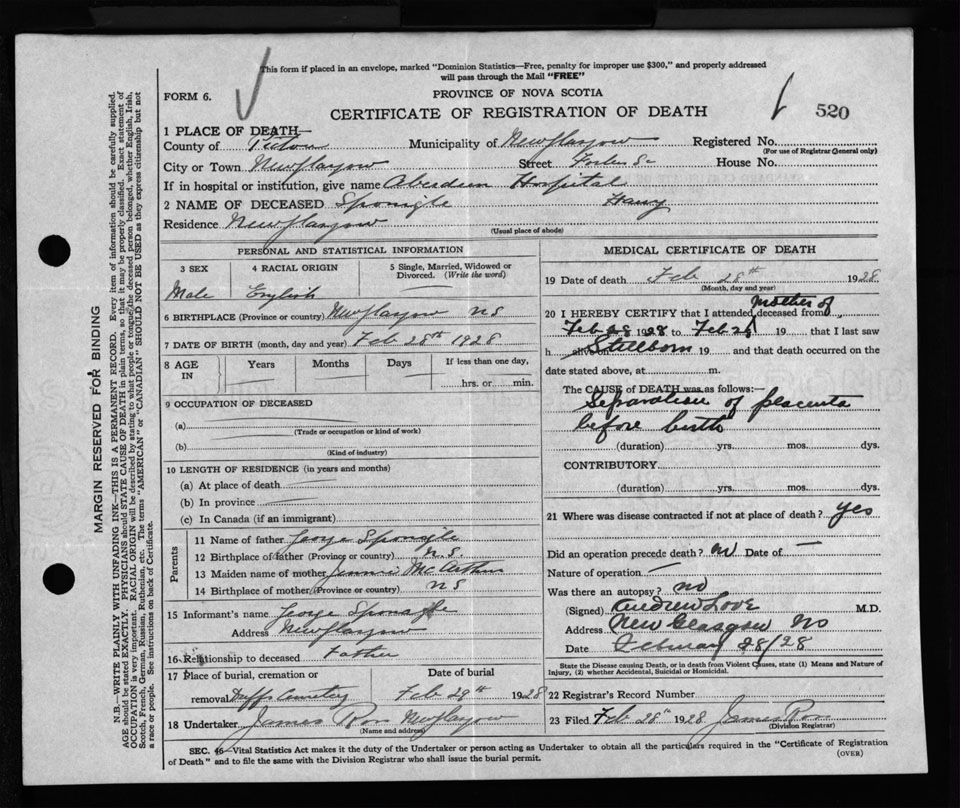 This form if placed in an envelope, marked "Dominion Statistics—Free, penalty for improper use $300," and properly addressed
will pass through the Mail "FREE"
FORM 6.
PROVINCE OF NOVA SCOTIA
CERTIFICATE OF REGISTRATION OF DEATH
520
1 PLACE OF DEATH—
County of Pictou Municipality of New Glasgow Registered No.
(For use of Registrar General only)
City or Town New Glasgow Street Forbes St House No.
If in hospital or institution, give name Aberdeen Hospital
2 NAME OF DECEASED Sponagle
Residence New Glasgow
(Usual place of abode)
PERSONAL AND STATISTICAL INFORMATION
3 SEX 4 RACIAL ORIGIN 5 Single, Married, Widowed or Divorced. (Write the word)
Male English
6 BIRTHPLACE (Province or country) New Glasgow NS
7 DATE OF BIRTH (month, day and year) Feb 28th 1928
8 AGE IN Years Months Days If less than one day,
hrs. or min.
9 OCCUPATION OF DECEASED
(a)
(Trade or occupation or kind of work)
(b)
(Kind of industry)
10 LENGTH OF RESIDENCE (in years and months)
(a) At place of death
(b) In province
(c) In Canada (if an immigrant)
Parents
11 Name of father George Spongle
12 Birthplace of father (Province or country) N.S.
13 Maiden name of mother Jennie McArthur
14 Birthplace of mother (Province or country) NS
15 Informant's name George Sponagle
Address New Glasgow
16 Relationship to deceased Father
17 Place of burial, cremation or Date of burial
removal Duffs Cemetery Feb 29th 1928
18 Undertaker James Ross New Glasgow
(Name and address)
MEDICAL CERTIFICATE OF DEATH
19 Date of death Feb 28th 1928
(Month, day and year)
mother of
20 I HEREBY CERTIFY that I attended deceased from
Feb 28 1928 to Feb 28 19 that I last saw
h alive on Stillborn 19 and that death occurred on the
date stated above, at m.
The CAUSE of DEATH was as follows:—
Separation of placenta
before birth
(duration) yrs. mos. dys.
CONTRIBUTORY
(duration) yrs. mos. dys.
21 Where was disease contracted if not at place of death? yes
Did an operation precede death? no Date of —
Nature of operation —
Was there an autopsy? no
(Signed) Andrew Love M.D.
Address New Glasgow NS
Date February 28/28
State the Disease causing Death, or in death from Violent Causes, state (1) Means and Nature of
Injury, (2) whether Accidental, Suicidal or Homicidal.
22 Registrar's Record Number
23 Filed Feb 28th 1928 James Ross
(Division Registrar)
SEC. 46—Vital Statistics Act makes it the duty of the Undertaker or person acting as Undertaker to obtain all the particulars required in the "Certificate of Registration
of Death" and to file the same with the Division Registrar who shall issue the burial permit.
(OVER)
MARGIN RESERVED FOR BINDING
N.B.—WRITE PLAINLY WITH UNFADING INK—THIS IS A PERMANENT RECORD. Every item of information should be carefully supplied.
AGE should be stated EXACTLY. PHYSICIANS should STATE CAUSE OF DEATH in plain terms, so that it may be properly classified. Exact statement of
OCCUPATION is very important. RACIAL ORIGIN will be described by stating to what people or tongue the deceased person belonged, whether English, Irish,
Scotch, French, German, Russian, Ruthenian, etc. The terms "AMERICAN" or "CANADIAN" SHOULD NOT BE USED as they express citizenship but not
a race or people. See instructions on back of Certificate.